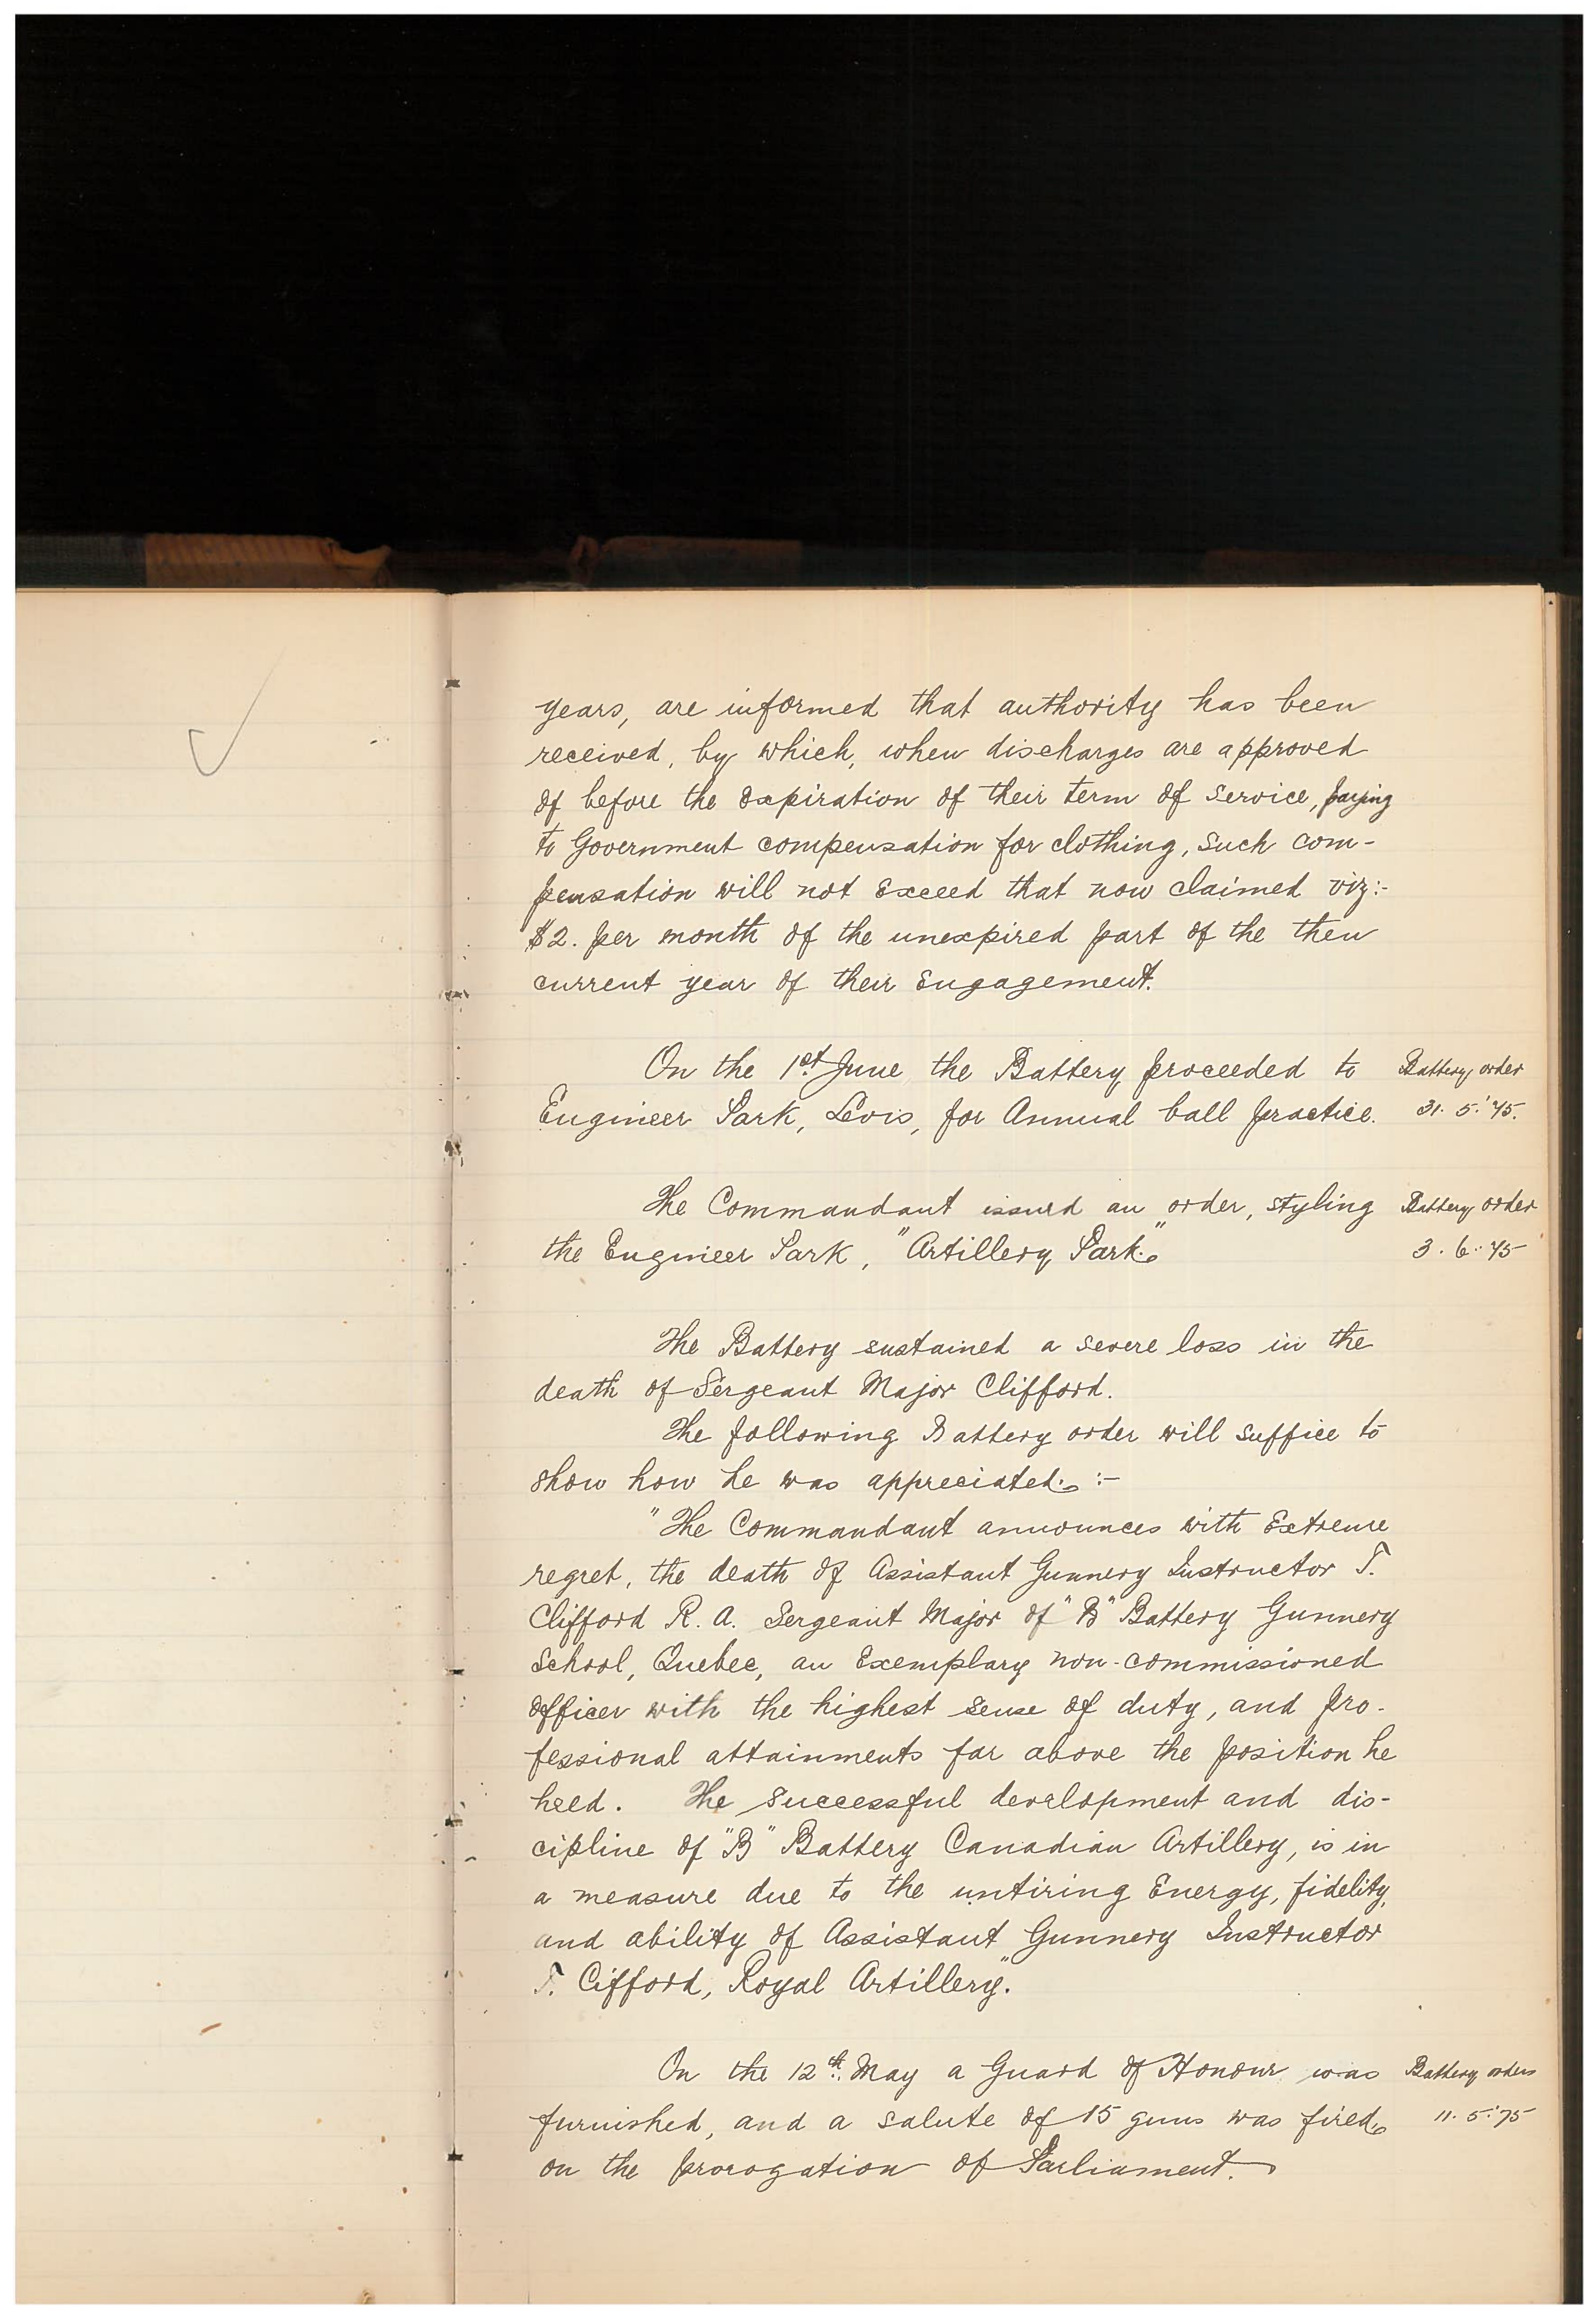 years, are informed that authority has been
received, by which, when discharges are approved
of before the expiration of their term of service, paying
to Government compensation for clothing, such com-
pensation will not exceed that now claimed viz:-
$2. per month of the unexpired part of the then
current year of their engagement.
On the 1st June the Battery proceeded to
Battery order
Engineer Park, Levis, for Annual ball practice.
31. 5.'75.
The Commandant issued an order, styling
Battery order
the Engineer Park, "Artillery Park."
3. 6.'75
The Battery sustained a severe loss in the
death of Sergeant Major Clifford.
The following Battery order will suffice to
show how he was appreciated. :-
"The Commandant announces with extreme
regret, the death of Assistant Gunnery Instructor T.
Clifford R. A. Sergeant Major of "B" Battery Gunnery
School, Quebec, an Exemplary non-commissioned
officer with the highest sense of duty, and pro-
fessional attainments far above the position he
held. The successful development and dis-
cipline of "B" Battery Canadian Artillery, is in
a measure due to the untiring Energy, fidelity,
and ability of Assistant Gunnery Instructor
T. Cifford, Royal Artillery."
On the 12th. May a Guard of Honour was
Battery orders
furnished, and a salute of 15 guns was fired,
11. 5.'75
on the prorogation of Parliament.